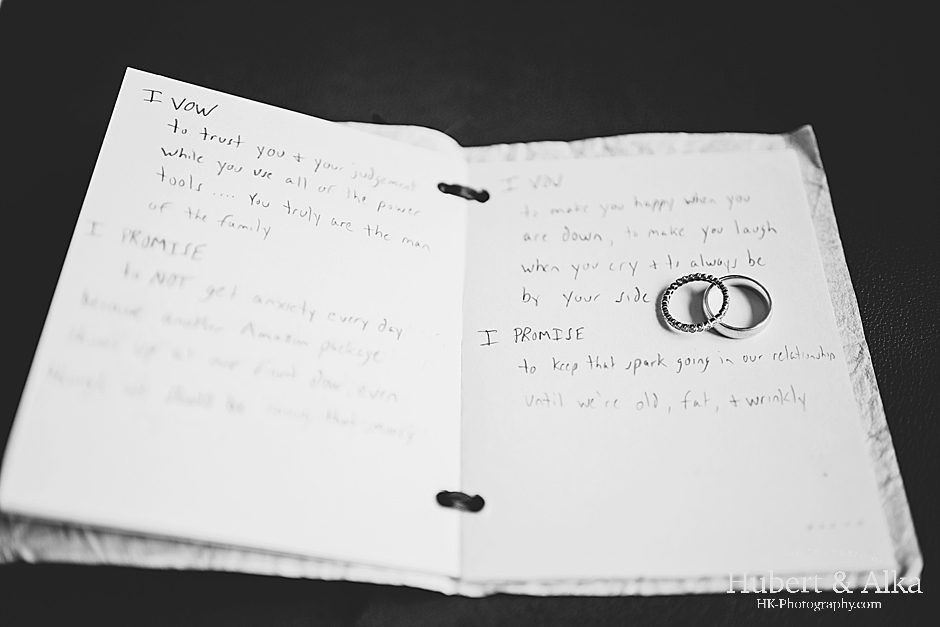 I VOW
to trust you + your judgement
while you use all of the power
tools .... You truly are the man
of the family
I PROMISE
to NOT get anxiety every day
because another Amazon package
shows up at our front door, even
though we should be saving that money
I VOW
to make you happy when you
are down, to make you laugh
when you cry + to always be
by your side
I PROMISE
to keep that spark going in our relationship
until we're old, fat, + wrinkly
Hubert & Alka
HK-Photography.com